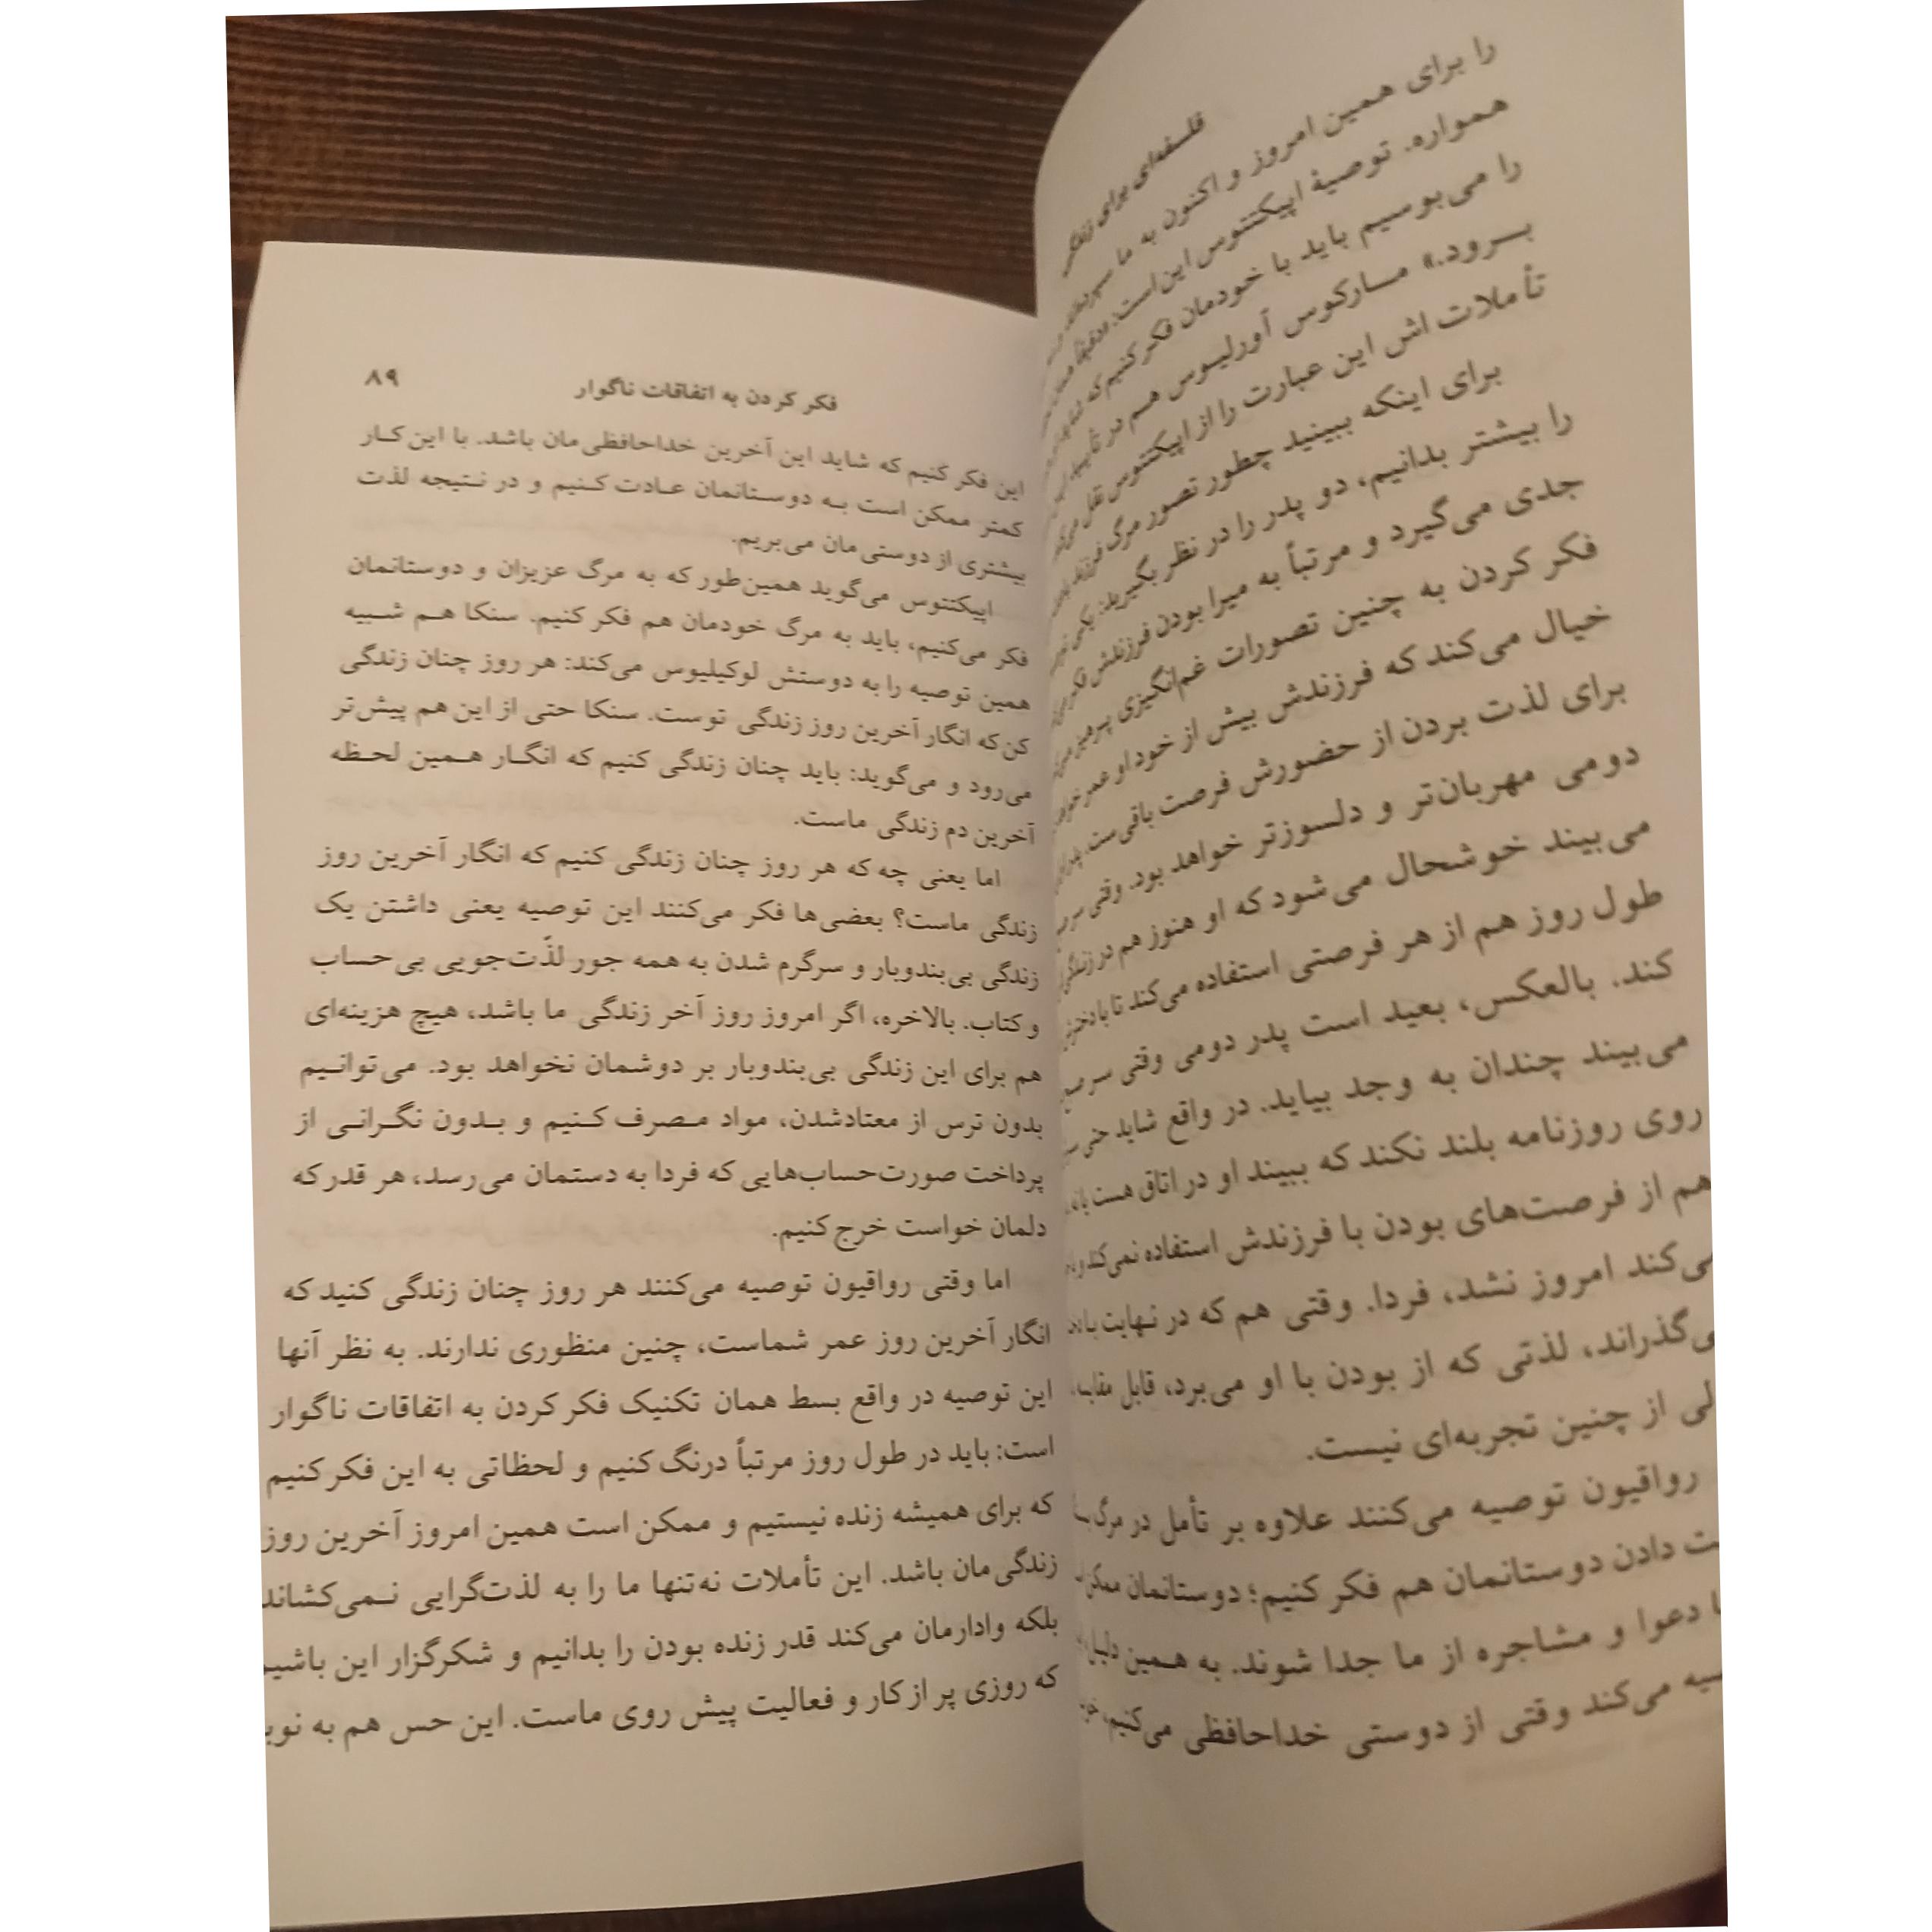 فلسفه‌ای برای زندگی
را برای همین امروز و اکنون به ما سپرده‌اند،
همواره. توصیهٔ اپیکتتوس این است:
را می‌بوسیم باید با خودمان فکر کنیم که
بـرود.» مـارکوس آورلیـوس هـم در
تأملات اش این عبارت را از اپیکتتوس نقل
برای اینکه ببینید چطور تصور مرگ
را بیشتر بدانیم، دو پدر را در نظر بگیرید: یکی
جدی می‌گیرد و مرتباً به میرا بودن فرزندش فکر
فکر کردن به چنین تصورات غم‌انگیزی پرهیز
خیال می‌کند که فرزندش بیش از خود او عمر
برای لذت بردن از حضورش فرصت باقی‌ست.
دومی مهربان‌تر و دلسوزتر خواهد بود. وقتی
می‌بیند خوشحال می‌شود که او هنوز هم در
طول روز هم از هر فرصتی استفاده می‌کند تا با
کند. بالعکس، بعید است پدر دومی وقتی سر
می‌بیند چندان به وجد بیاید. در واقع شاید حتی
روی روزنامه بلند نکند که ببیند او در اتاق هست یا نه.
هم از فرصت‌های بودن با فرزندش استفاده نمی‌کند و
می‌کند امروز نشد، فردا. وقتی هم که در نهایت با
می‌گذراند، لذتی که از بودن با او می‌برد، قابل
از چنین تجربه‌ای نیست.
رواقیون توصیه می‌کنند علاوه بر تأمل در مرگ
دادن دوستانمان هم فکر کنیم؛ دوستانمان
دعوا و مشاجره از ما جدا شوند. به همین دلیل
می‌کند وقتی از دوستی خداحافظی می‌کنیم،
فکر کردن به اتفاقات ناگوار ۸۹
این فکر کنیم که شاید این آخرین خداحافظی‌مان باشد. با این کـار
کمتر ممکن است بـه دوسـتانمان عـادت کـنیم و در نـتیجه لذت
بیشتری از دوستی‌مان می‌بریم.
اپیکتتوس می‌گوید همین‌طور که به مرگ عزیزان و دوستانمان
فکر می‌کنیم، باید به مرگ خودمان هم فکر کنیم. سنکا هـم شـبیه
همین توصیه را به دوستش لوکیلیوس می‌کند: هر روز چنان زندگی
کن که انگار آخرین روز زندگی توست. سنکا حتی از این هم پیش‌تر
می‌رود و می‌گوید: باید چنان زندگی کنیم که انگـار هـمین لحـظه
آخرین دم زندگی ماست.
اما یعنی چه که هر روز چنان زندگی کنیم که انگار آخرین روز
زندگی ماست؟ بعضی‌ها فکر می‌کنند این توصیه یعنی داشتن یک
زندگی بی‌بندوبار و سرگرم شدن به همه جور لذّت‌جویی بی‌حساب
و کتاب. بالاخره، اگر امروز روز آخر زندگی ما باشد، هیچ هزینه‌ای
هم برای این زندگی بی‌بندوبار بر دوشمان نخواهد بود. می‌توانـیم
بدون ترس از معتادشدن، مواد مـصرف کـنیم و بـدون نگـرانـی از
پرداخت صورت‌حساب‌هایی که فردا به دستمان می‌رسد، هر قدر که
دلمان خواست خرج کنیم.
اما وقتی رواقیون توصیه می‌کنند هر روز چنان زندگی کنید که
انگار آخرین روز عمر شماست، چنین منظوری ندارند. به نظر آنها
این توصیه در واقع بسط همان تکنیک فکر کردن به اتفاقات ناگوار
است: باید در طول روز مرتباً درنگ کنیم و لحظاتی به این فکر کنیم
که برای همیشه زنده نیستیم و ممکن است همین امروز آخرین روز
زندگی‌مان باشد. این تأملات نه‌تنها ما را به لذت‌گرایی نـمی‌کشاند
بلکه وادارمان می‌کند قدر زنده بودن را بدانیم و شکرگزار این باشیم
که روزی پر از کار و فعالیت پیش روی ماست. این حس هم به